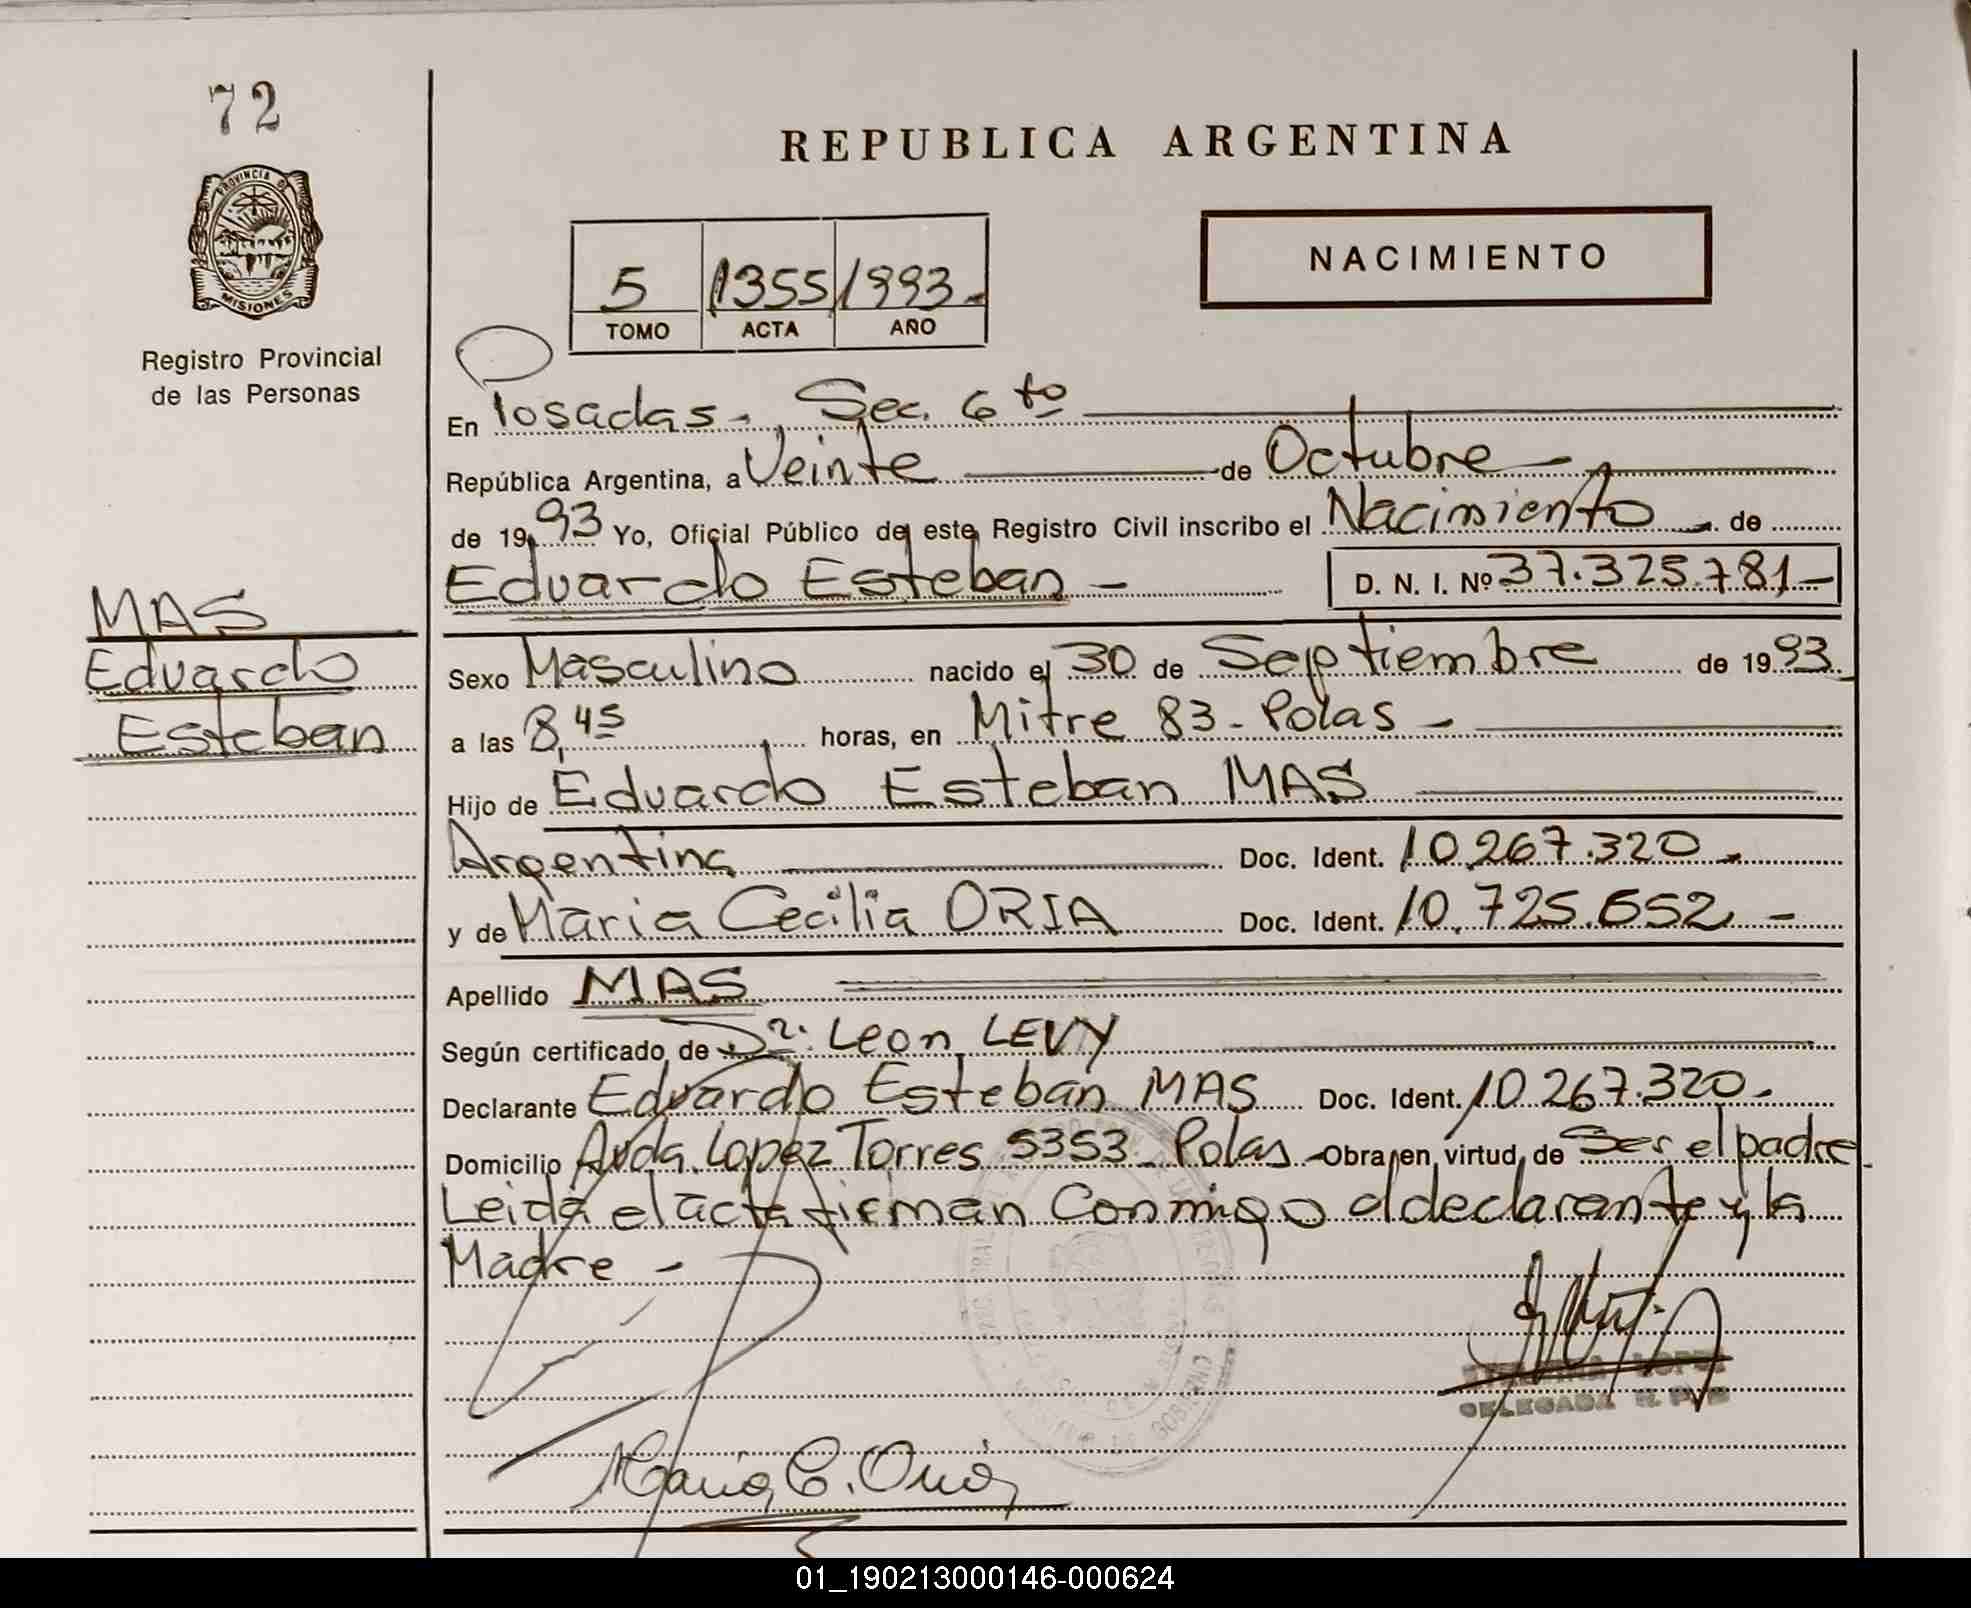 72
PROVINCIA DE
MISIONES
Registro Provincial
de las Personas
MAS
Eduardo
Esteban
REPUBLICA ARGENTINA
NACIMIENTO
5 1355 1993.-
TOMO ACTA AÑO
En Posadas-, Sec. 6 to
República Argentina, a Veinte de Octubre -
de 1993 Yo, Oficial Público de este Registro Civil inscribo el Nacimiento - de
Eduardo Esteban - D. N. I. Nº 37.325.781-
Sexo Masculino nacido el 30 de Septiembre de 1993.
a las 8,45 horas, en Mitre 83 - Pdas -
Hijo de Eduardo Esteban MAS
Argentina Doc. Ident. 10.267.320 -
y de Maria Cecilia ORIA Doc. Ident. 10.725.652 -
Apellido MAS
Según certificado de Dr. Leon LEVY
Declarante Eduardo Esteban MAS Doc. Ident. 10.267.320-
Domicilio Avda. Lopez Torres 5353 - Pdas - Obra en virtud de Ser el padre
Leida el acta firman Conmigo el declarante y la
Madre -
Maria C. Oria
LOPEZ
DELEGADA R. P. P.
01_190213000146-000624